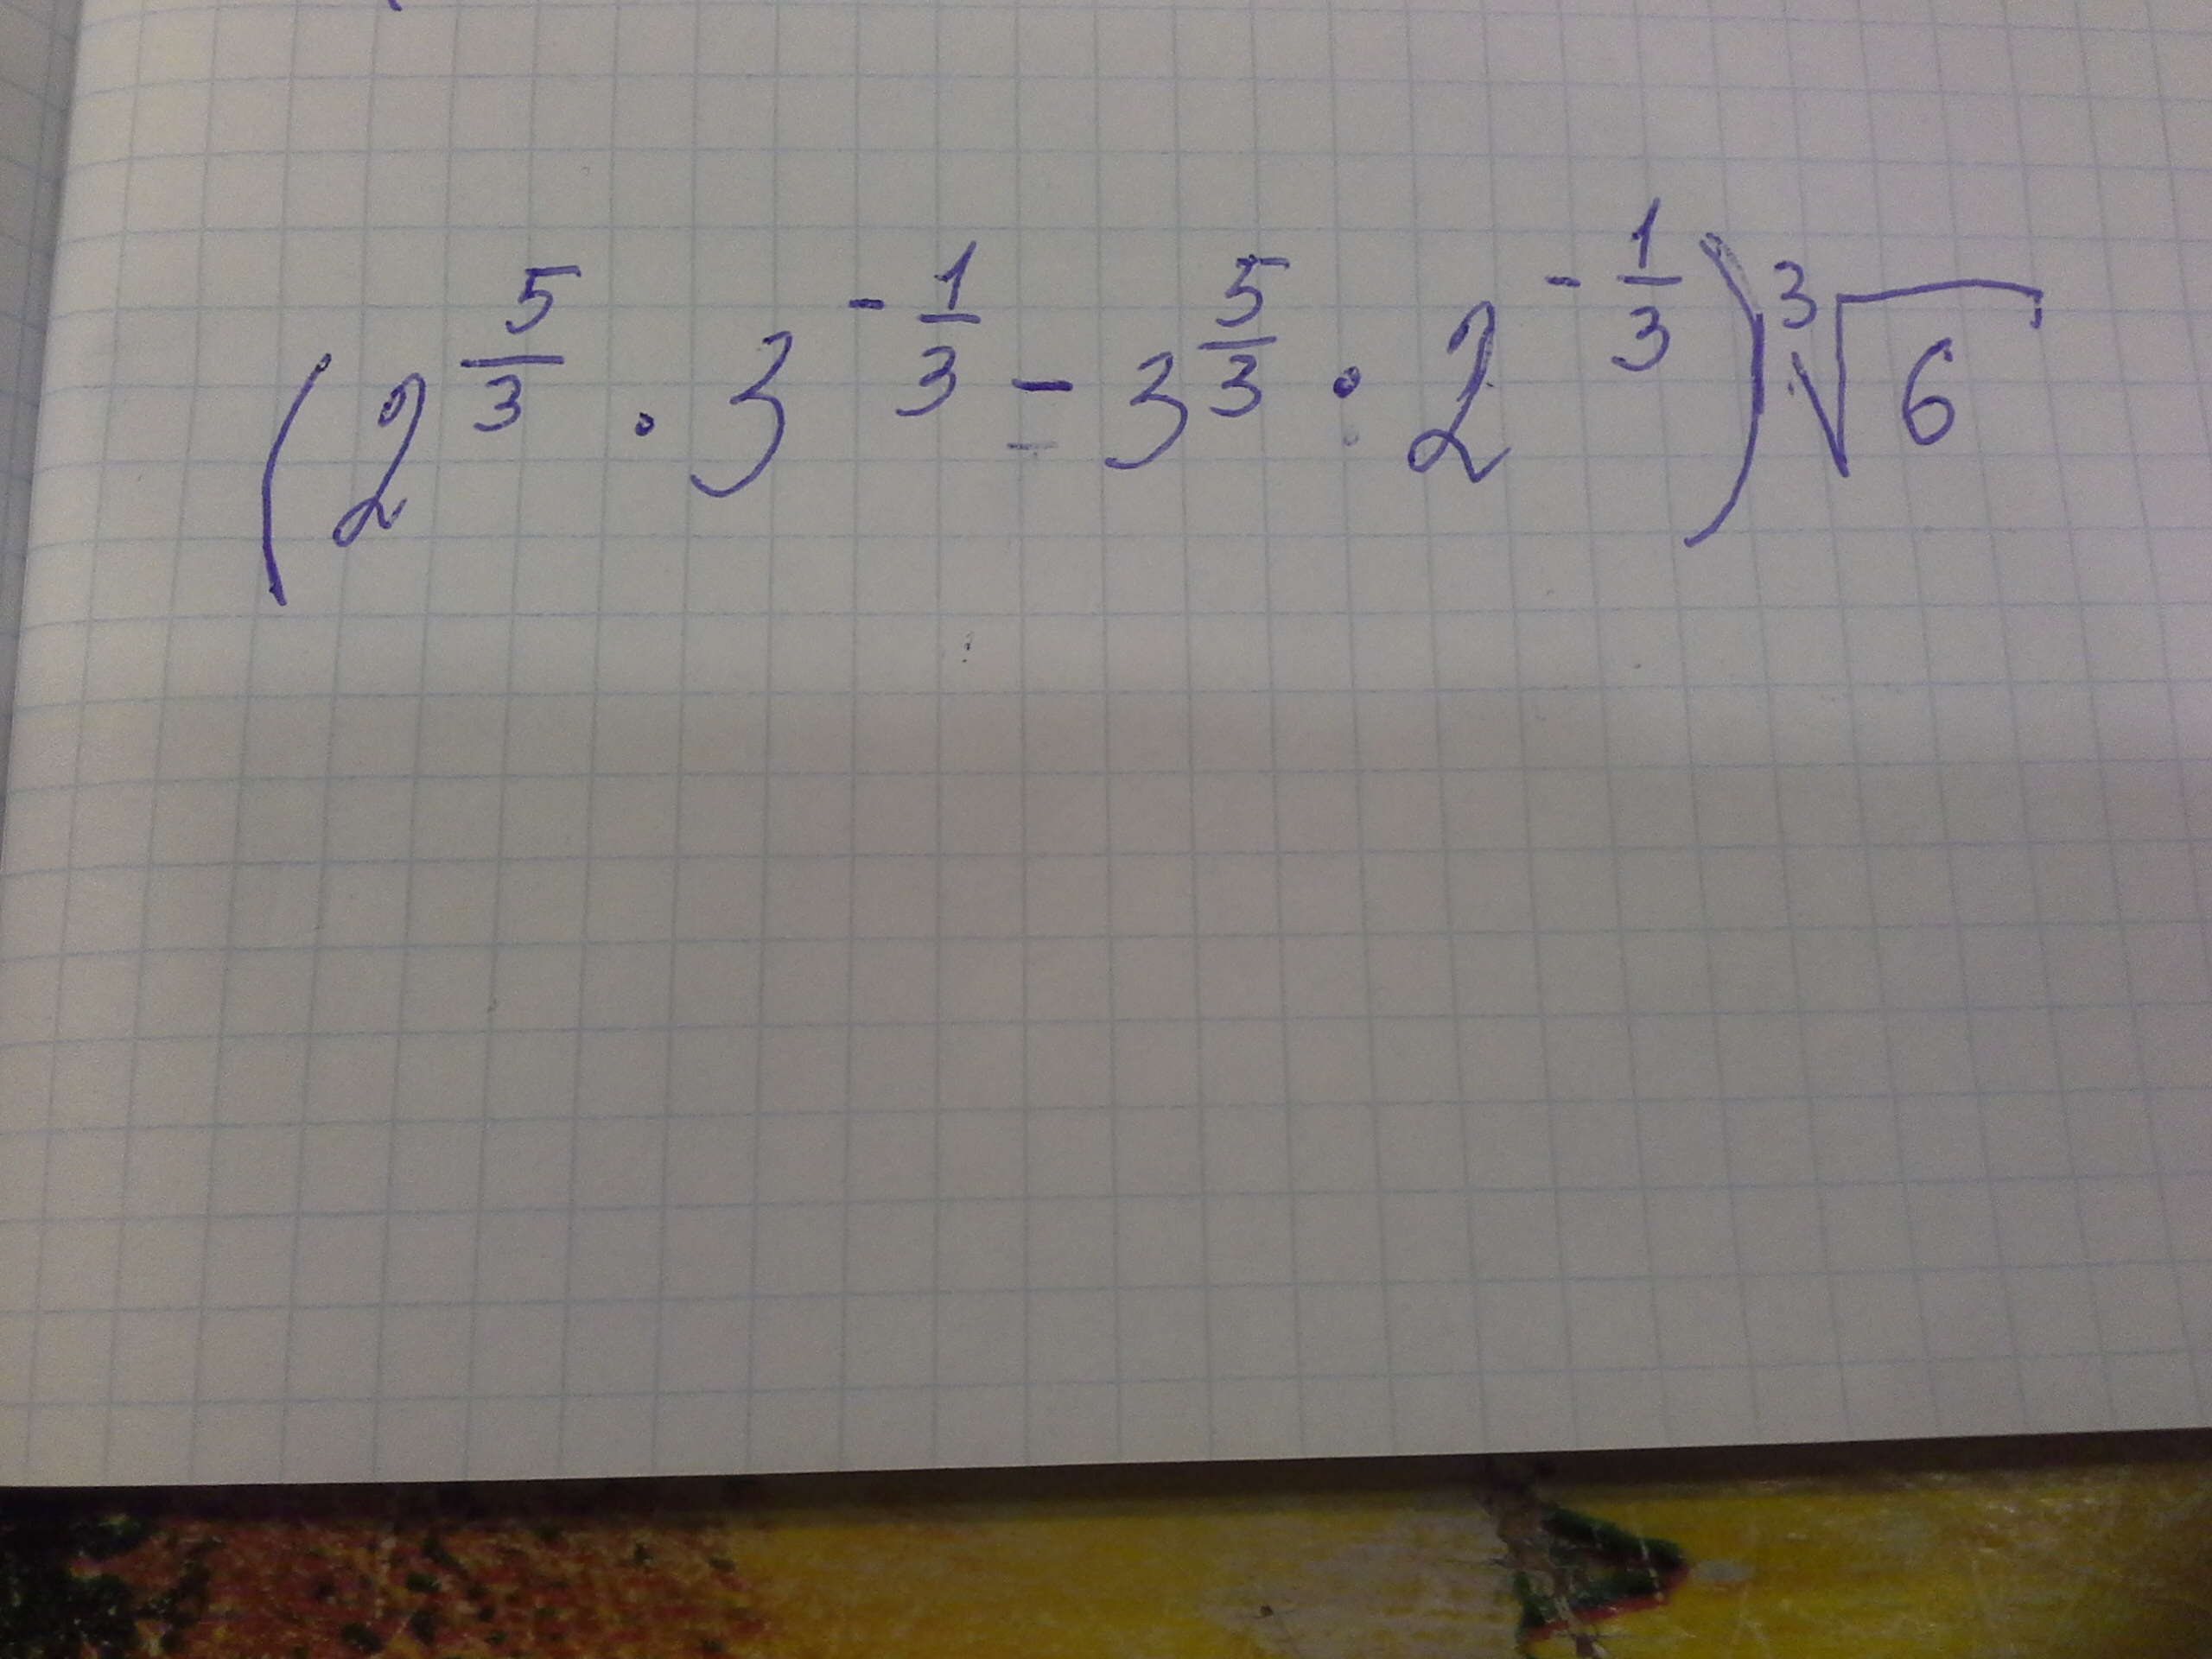 (2^{5/3} · 3^{-1/3} - 3^{5/3} · 2^{-1/3}) ∛6